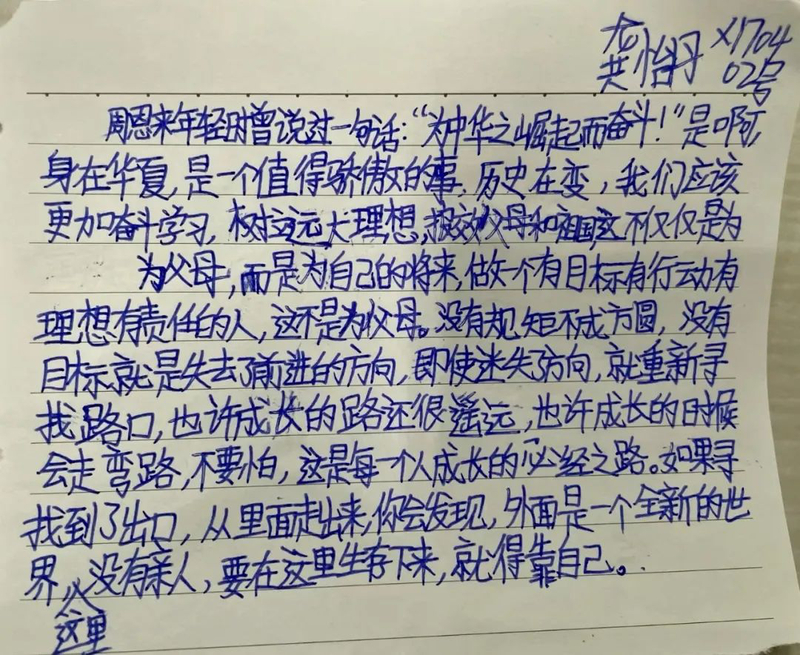 龚怡丹 X1704
02号
周恩来年轻时曾说过一句话:“为中华之崛起而奋斗!”是啊,
身在华夏,是一个值得骄傲的事,历史在变,我们应该
更加奋斗学习,树立远大理想,报效父母和祖国这不仅仅是为
为父母,而是为自己的将来,做一个有目标有行动有
理想有责任的人,这不是为父母。没有规矩不成方圆,没有
目标就是失去了前进的方向,即使迷失了方向,就重新寻
找路口,也许成长的路还很遥远,也许成长的时候
会走弯路,不要怕,这是每一个人成长的必经之路。如果寻
找到了出口,从里面走出来,你会发现,外面是一个全新的世
界,没有亲人,要在这里生存下来,就得靠自己。
这里